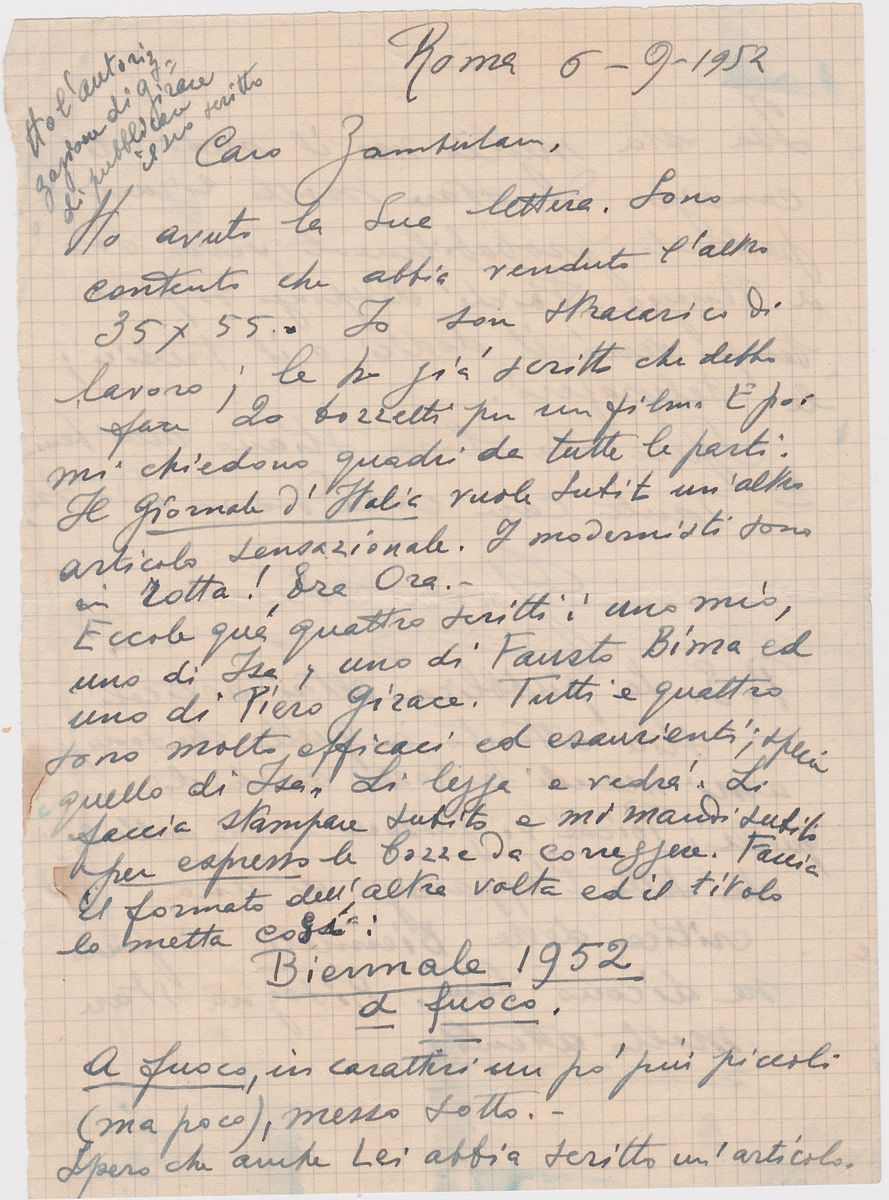 Roma 6-9-1952
Ho l'autoriz-
zazione di
Girace
di pubblicare
il suo scritto
Caro Zamberlan,
Ho avuto la Sua lettera. Sono
contento che abbia venduto l'altro
35 x 55. Io son stracarico di
lavoro; le ho già scritto che debbo
fare 20 bozzetti per un film. E poi
mi chiedono quadri da tutte le parti.
Il Giornale d'Italia vuole subito un'altro
articolo sensazionale. I modernisti sono
in rotta! Era Ora.-
Eccole quà quattro scritti: uno mio,
uno di Isa, uno di Fausto Bima ed
uno di Piero Girace. Tutti e quattro
sono molto efficaci ed esaurienti, specie
quello di Isa. Li legga e vedrà. Li
faccia stampare subito e mi mandi subito
per espresso le bozze da correggere. Faccia
il formato dell'altra volta ed il titolo
lo metta così:
Biennale 1952
a fuoco.
A fuoco, in caratteri un pò più piccoli
(ma poco), messo sotto.-
Spero che anche Lei abbia scritto un'articolo.